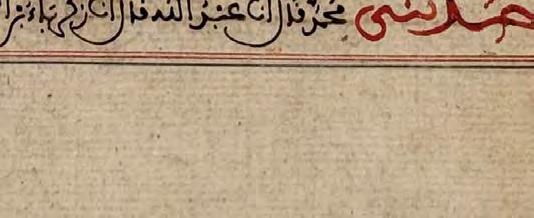 حدثني محمد قال انا عبد الله قال انا زكرياء بن